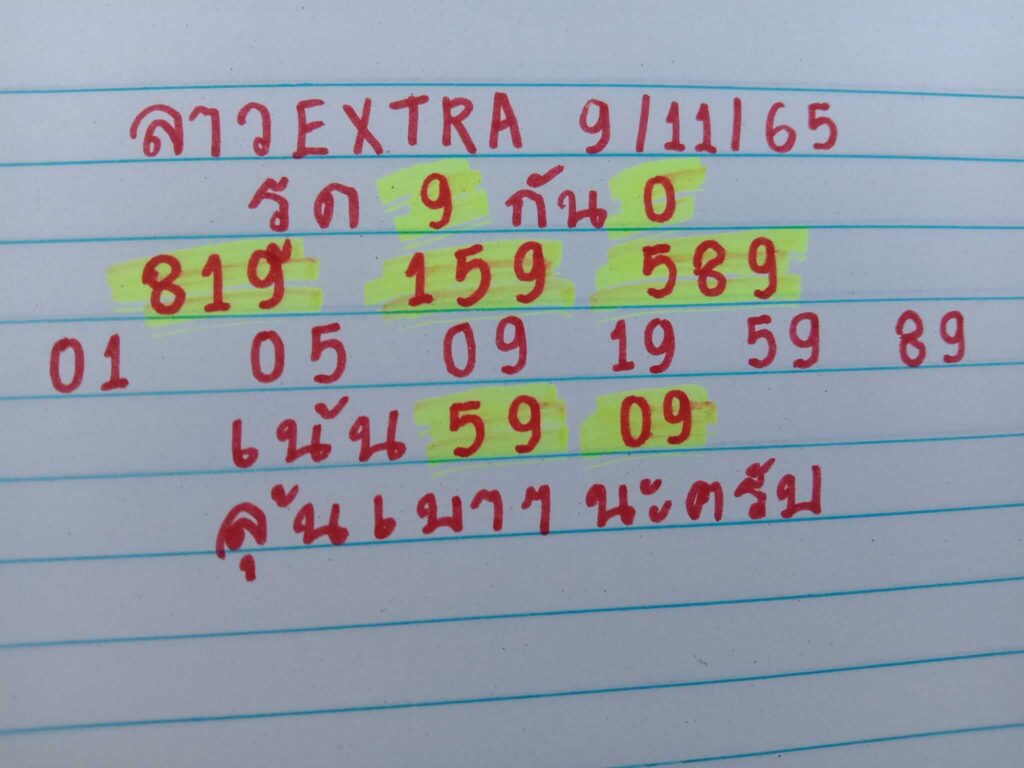 ลาวEXTRA 9/11/65
รูด 9 กัน 0
819 159 589
01 05 09 19 59 89
เน้น 59 09
ลุ้นเบาๆ นะครับ